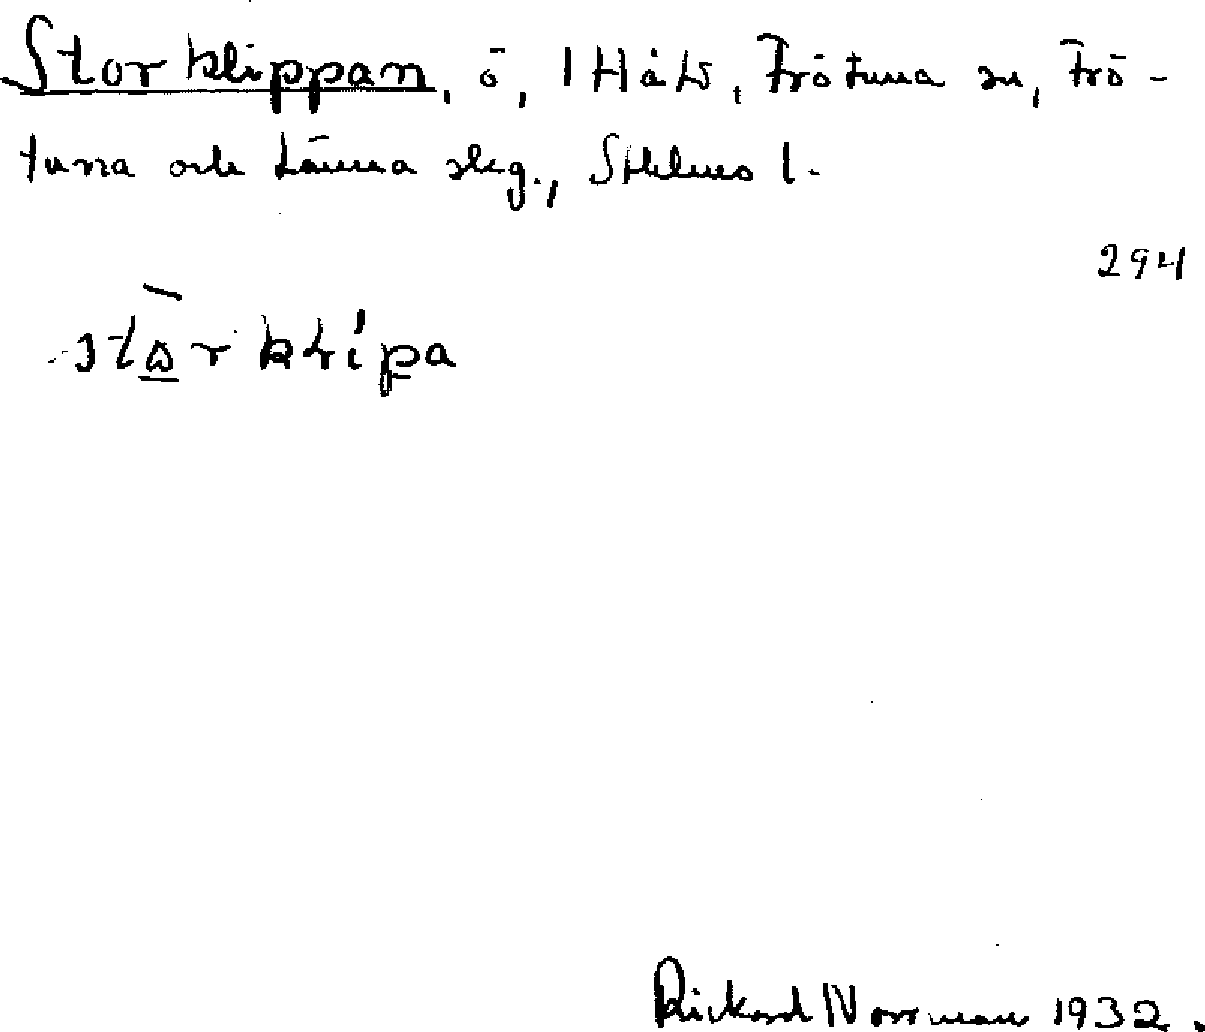 Storklippan, ö, 1 H å 4 b, Frötuna sn, Frö-
tuna och Länna skg., Sthlms l.
294
stωrklipa
Rickard Norrman 1932.